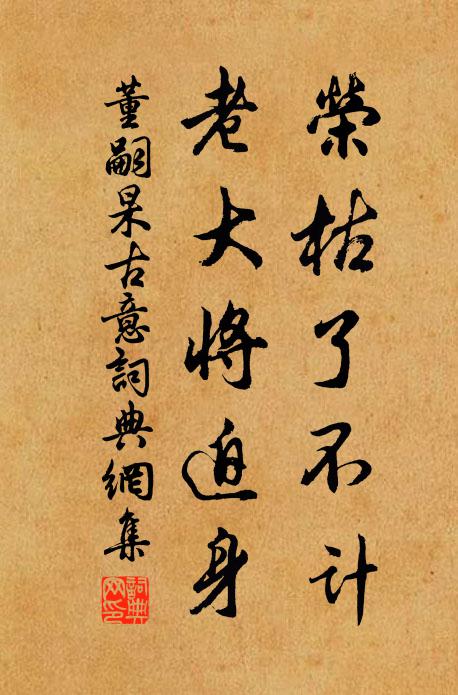 榮枯了不計
老大將迫身
董嗣杲古意詞典網集
詞典網印